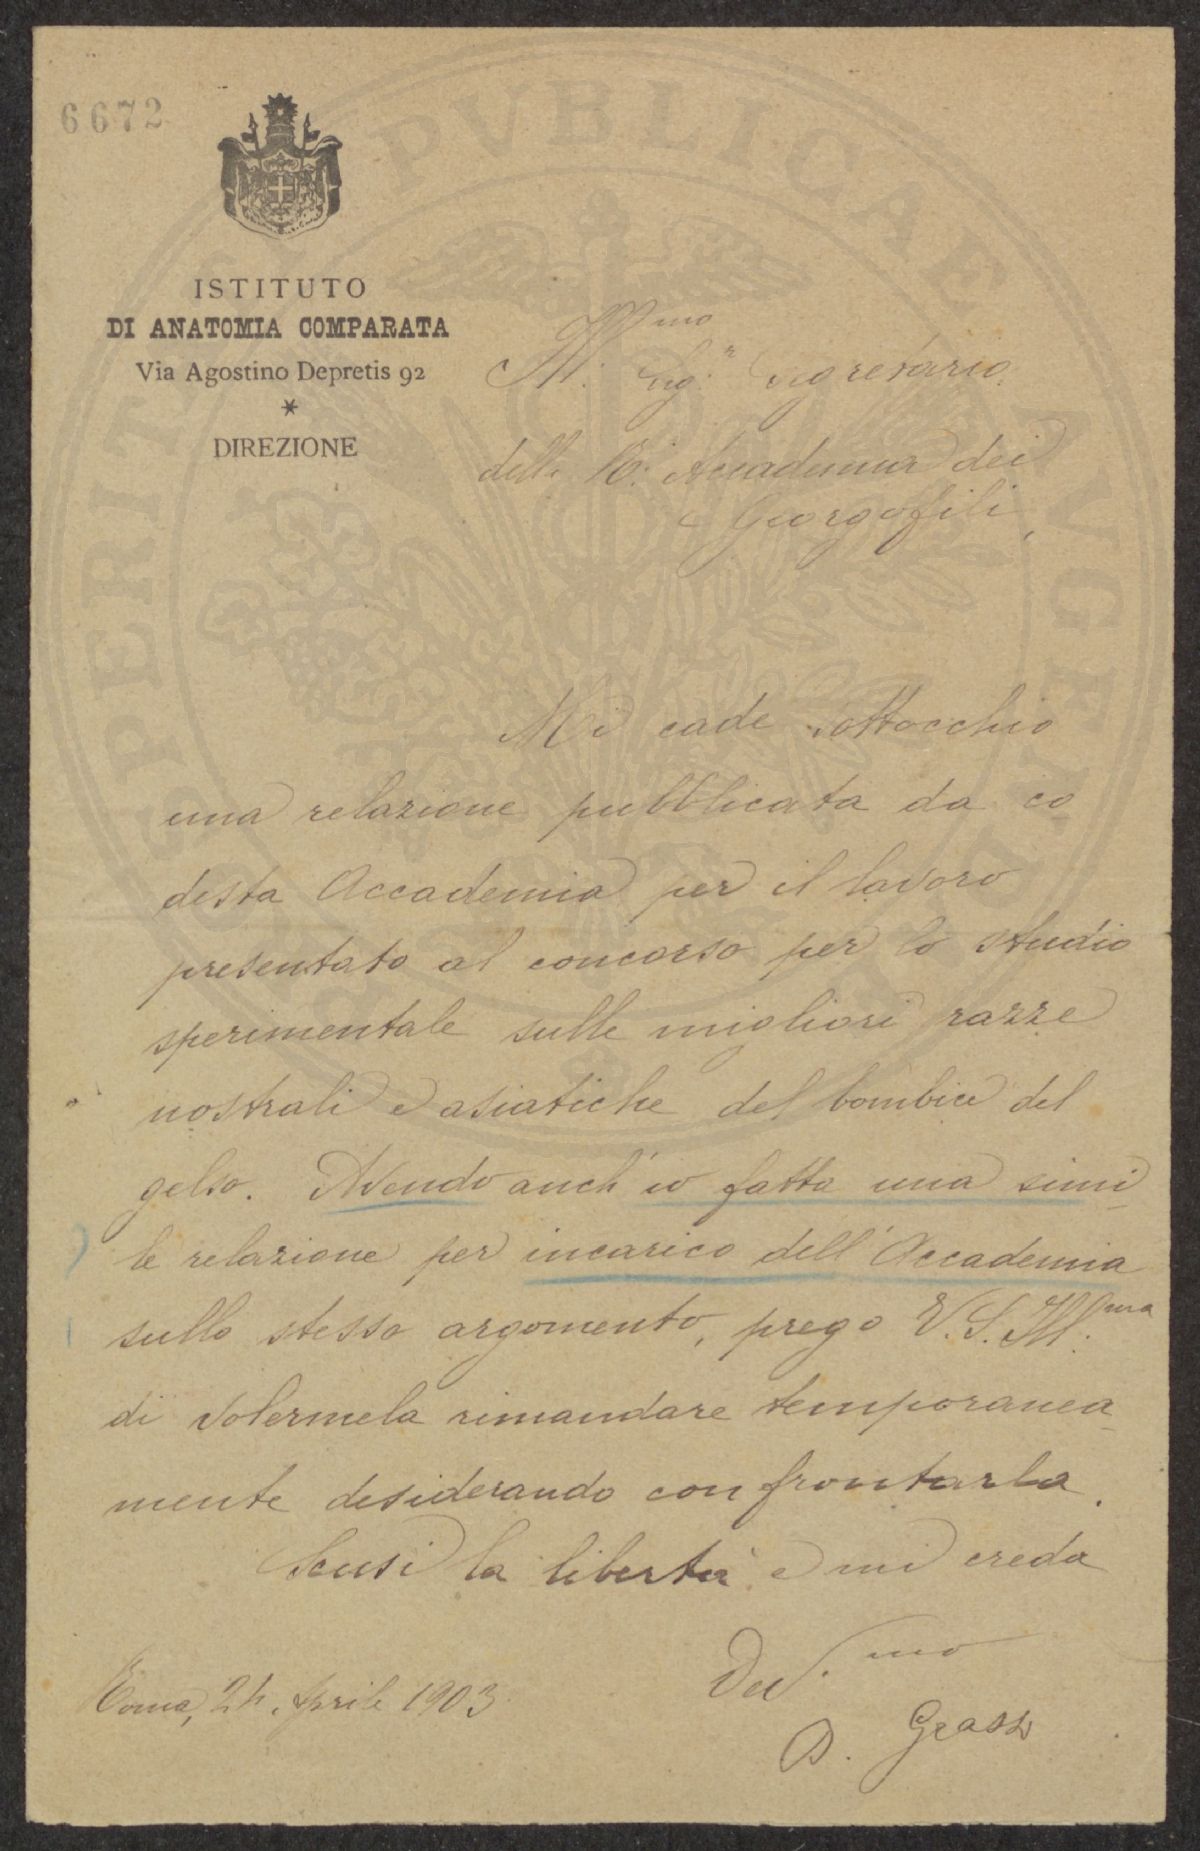 6672
ISTITUTO
DI ANATOMIA COMPARATA
Via Agostino Depretis 92
*
DIREZIONE
Ill.mo Sig.r Segretario
della R. Accademia dei
Georgofili,
Mi cade sottocchio
una relazione pubblicata da co
desta Accademia per il lavoro
presentato al concorso per lo studio
sperimentale sulle migliori razze
nostrali e asiatiche del bombice del
gelso. Avendo anch'io fatta una simi
le relazione per incarico dell'Accademia
sullo stesso argomento, prego V. S. Ill.ma
di volermela rimandare temporanea
mente desiderando confrontarla.
Scusi la libertà e mi creda
Dev.mo
Roma, 24 Aprile 1903
B. Grassi
PROSPERITATI PVBLICAE AVGENDAE